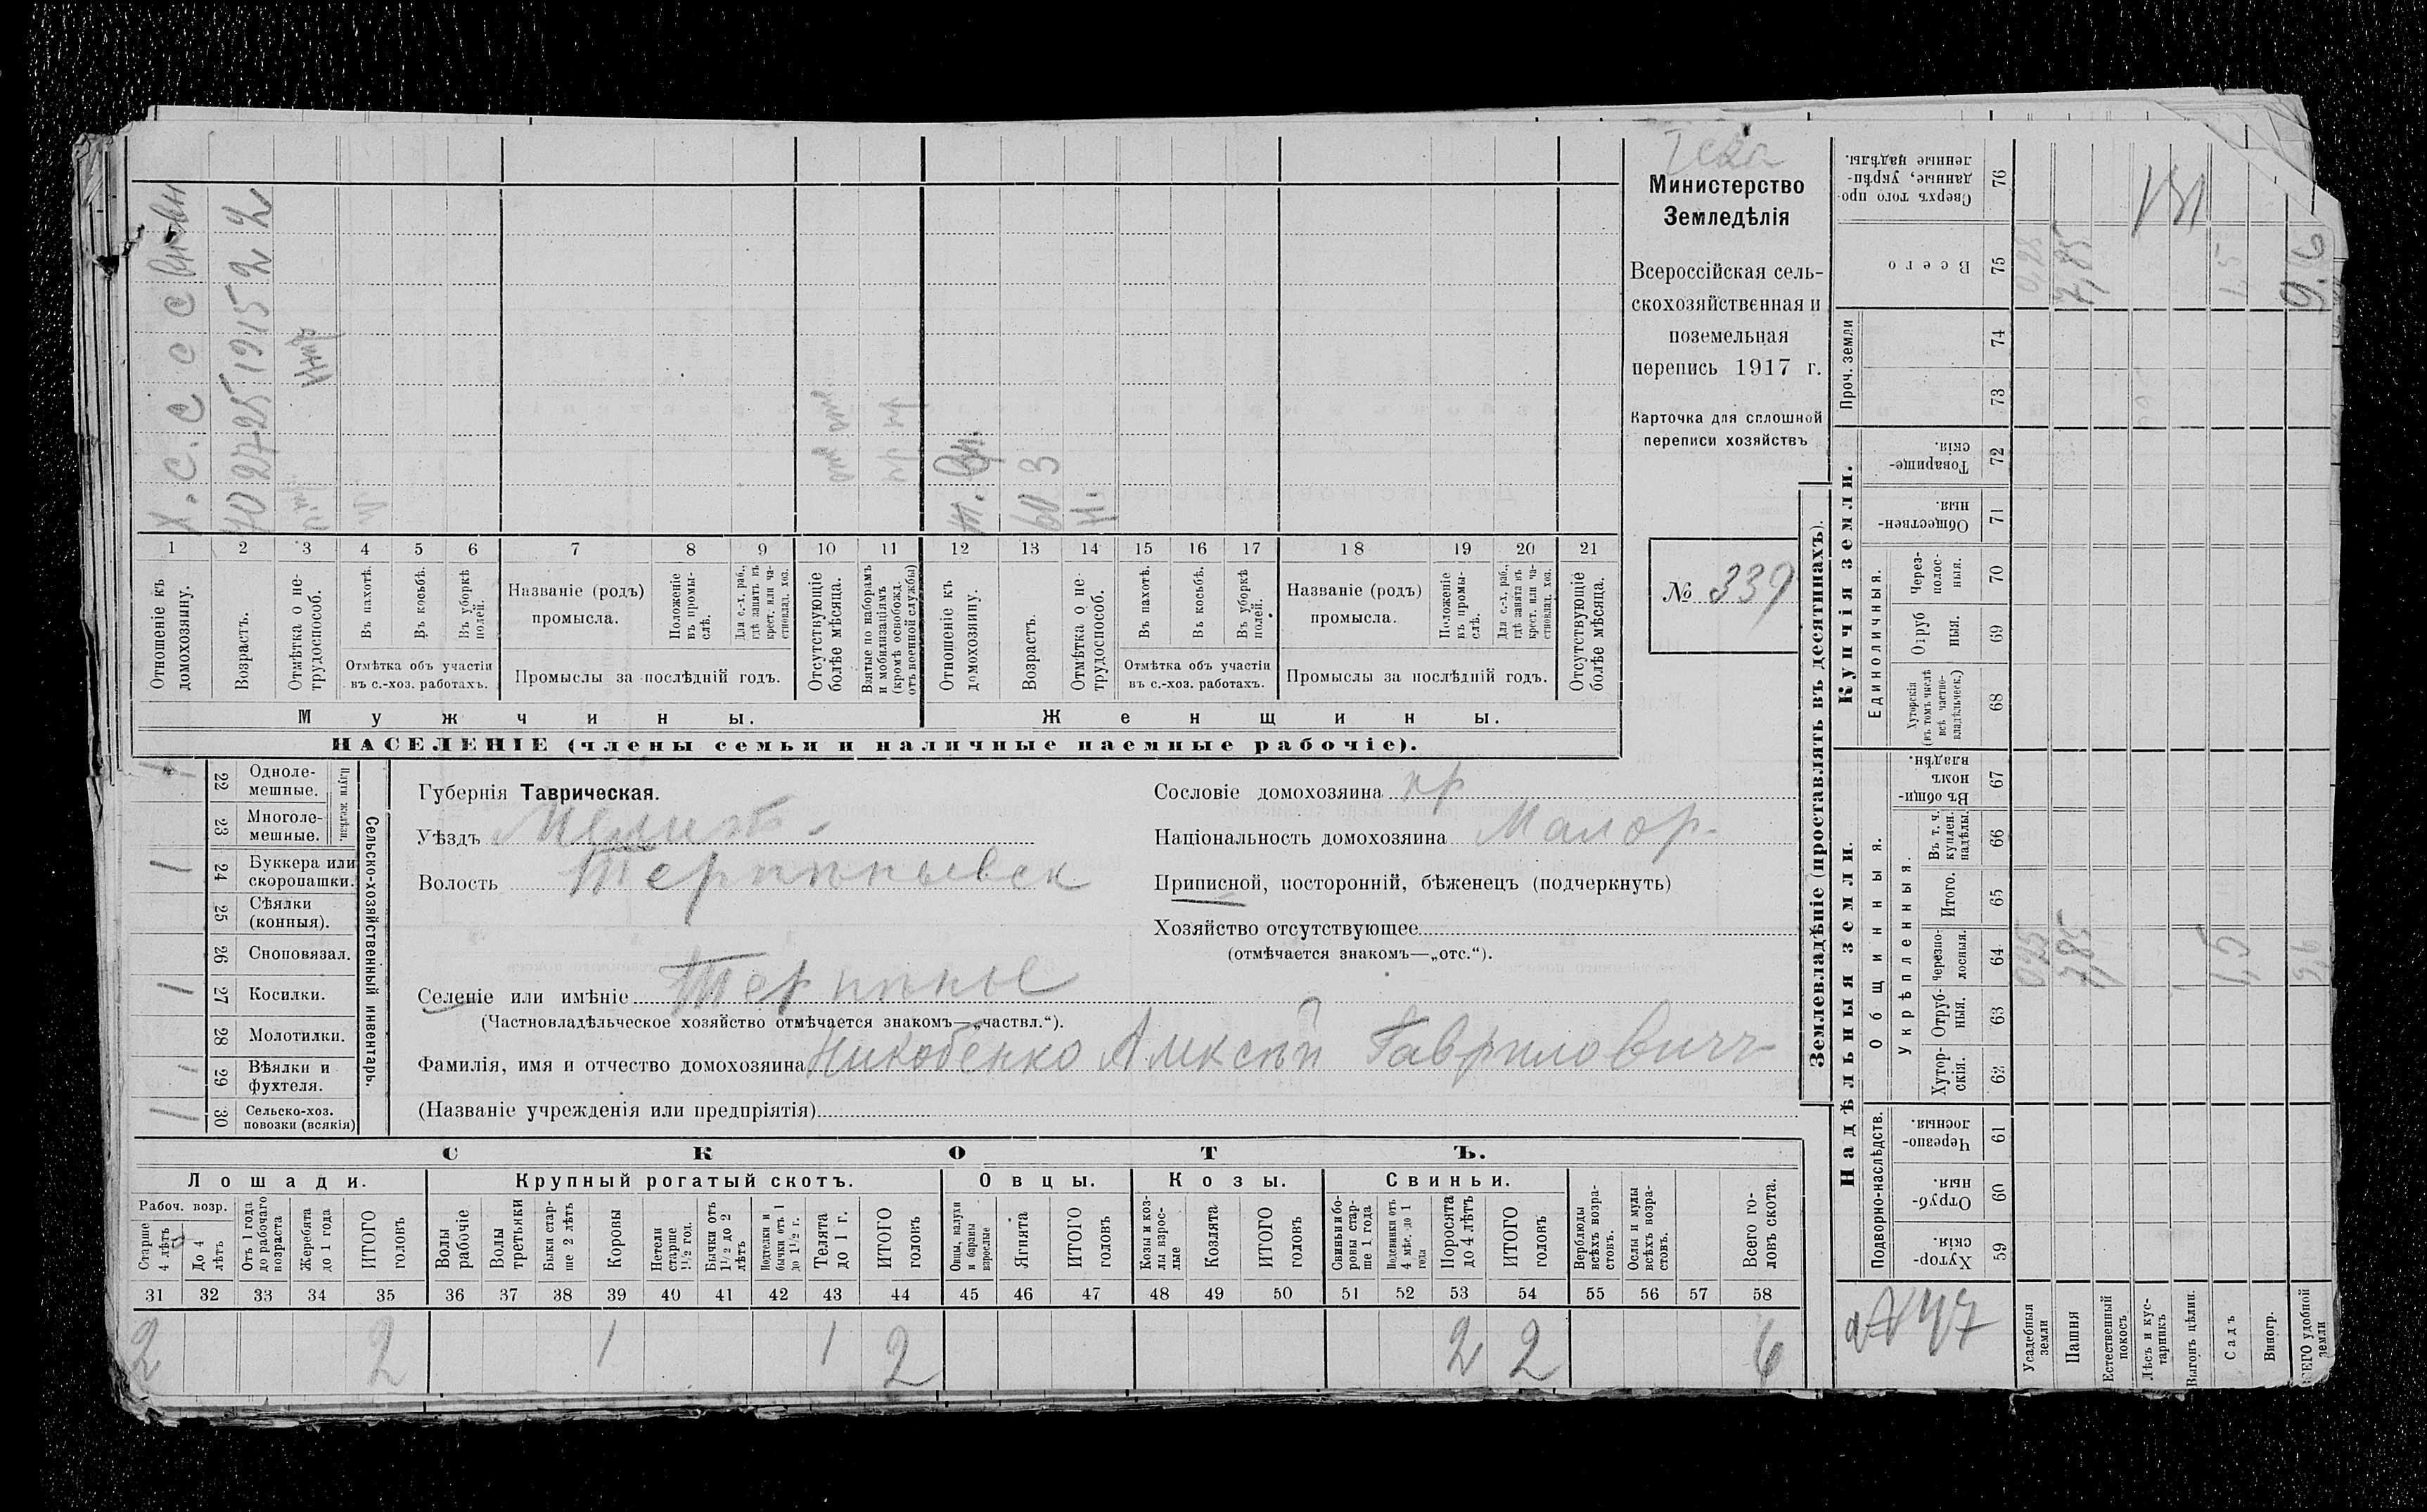 Министерство
Земледѣлія
Всероссійская сель-
скохозяйственная и
поземельная
перепись 1917 г.
Карточка для сплошной
переписи хозяйствъ
№ 339
Х. С. С С С Внвки
70 27 25 19 15 2 2
н.
Вн.
60 3
1 2 3 4 5 6 7 8 9 10 11 12 13 14 15 16 17 18 19 20 21
Отношеніе къ домохозяину.
Возрастъ.
Отмѣтка о не-трудоспособ.
Въ пахотѣ.
Въ косьбѣ.
Въ уборкѣ полей.
Отмѣтка объ участіи
въ с.-хоз. работахъ.
Названіе (родъ)
промысла.
Положеніе въ промы-слѣ.
Для с.-х. раб., гдѣ занятъ въ крест. или ча-стновлад. хоз.
Промыслы за послѣдній годъ.
Отсутствующіе болѣе мѣсяца.
Взятые по наборамъ и мобилизаціямъ (кромѣ освобожд. отъ военной службы)
Отношеніе къ домохозяину.
Возрастъ.
Отмѣтка о не-трудоспособ.
Въ пахотѣ.
Въ косьбѣ.
Въ уборкѣ полей.
Отмѣтка объ участіи
въ с.-хоз. работахъ.
Названіе (родъ)
промысла.
Положеніе въ промы-слѣ.
Для с.-х. раб., гдѣ занята въ крест. или ча-стновлад. хоз.
Промыслы за послѣдній годъ.
Отсутствующіе болѣе мѣсяца.
Мужчины.
Женщины.
НАСЕЛЕНІЕ (члены семьи и наличные наемные рабочіе).
Сельско-хозяйственный инвентарь.
Плуги желѣзн.
22 Одноле-мешные. 1
23 Многоле-мешные.
24 Буккера или скоропашки. 1
25 Сѣялки (конныя).
26 Сноповязал.
27 Косилки. 1
28 Молотилки.
29 Вѣялки и фухтеля. 1
30 Сельско-хоз. повозки (всякія) 1
Губернія Таврическая.
Уѣздъ Мелит.
Волость Терпѣньевск
Селеніе или имѣніе Терпѣнье
(Частновладѣльческое хозяйство отмѣчается знакомъ—„частвл.“).
Фамилія, имя и отчество домохозяина Никобенко Алексѣй Гавриловичъ
(Названіе учрежденія или предпріятія)
Сословіе домохозяина кр
Національность домохозяина Малор.
Приписной, посторонній, бѣженецъ (подчеркнуть)
Хозяйство отсутствующее
(отмѣчается знакомъ—„отс.“).
СКОТЪ.
Лошади. Крупный рогатый скотъ. Овцы. Козы. Свиньи.
Рабоч. возр.
Старше 4 лѣтъ
До 4 лѣтъ
Отъ 1 года до рабочаго возраста
Жеребята до 1 года
ИТОГО головъ
Волы рабочіе
Волы третьяки
Быки стар-ше 2 лѣтъ
Коровы
Нетели старше 1½ год.
Бычки отъ 1½ до 2 лѣтъ
Подтелки и бычки отъ 1 до 1½ г.
Телята до 1 г.
ИТОГО головъ
Овцы, валухи и бараны взрослые
Ягнята
ИТОГО головъ
Козы и коз-лы взрос-лые
Козлята
ИТОГО головъ
Свиньи и бо-ровы стар-ше 1 года
Подсвинки отъ 4 мѣс. до 1 года
Поросята до 4 лѣтъ
ИТОГО головъ
Верблюды всѣхъ возра-стовъ.
Ослы и мулы всѣхъ возра-стовъ.
Всего го-ловъ скота.
31 32 33 34 35 36 37 38 39 40 41 42 43 44 45 46 47 48 49 50 51 52 53 54 55 56 57 58
2 2 1 1 2 2 2 6
Землевладѣніе (проставлять въ десятинахъ).
Надѣльныя земли.
Купчія земли.
Проч. земли
Подворно-наслѣдств.
Общинныя.
Укрѣпленныя.
Единоличныя.
Сверхъ того про-данные, укрѣп-ленные надѣлы. 76
Всего 75
74
73
Товарище-скія. 72
Обществен-ныя. 71
Через-полос-ныя. 70
Отруб ныя. 69
Хуторскія (въ томъ числѣ всѣ частно-владѣльческ.) 68
Въ общи-номъ владѣн. 67
Въ т. ч. куплен. надѣлы. 66
Итого. 65
Черезпо-лосныя. 64
Отруб-ныя. 63
Хутор-скія. 62
Черезпо-лосныя. 61
Отруб-ныя. 60
Хутор-скія. 59
Усадебныя земли
Пашня
Естественный покосъ
Лѣсъ и кус-тарникъ
Выгонъ цѣлин.
Садъ
Виногр.
ВСЕГО удобной земли
0,25 7,85 1,5 9,6
7,85 1,5 9,6